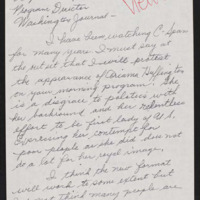 Program Director
Washington Journal -
I have been watching C-Span
for many years. I must say at
the outset that I will protest
the appearance of Arianna Huffington
on your morning program. She
is a disgrace to politics with
her background and her relentless
effort to be first lady of U.S.
Overseeing her contempt for
poor people as she did does not
do a lot for her royal image.
I think the new format
will work to some extent but
I think many people are